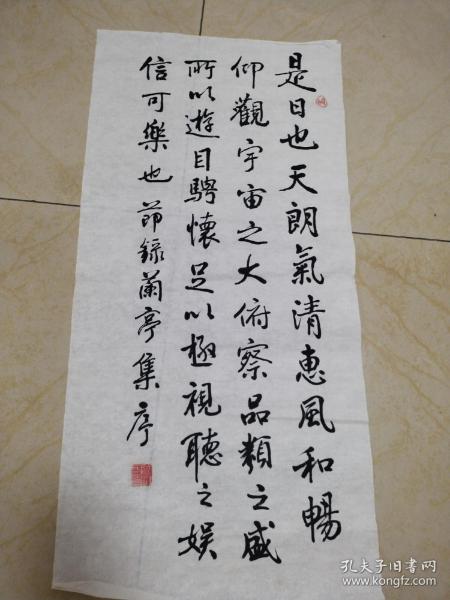 是日也天朗氣清惠風和暢
仰觀宇宙之大俯察品類之盛
所以遊目騁懷足以極視聽之娱
信可樂也節録蘭亭集序
孔夫子旧书网
www.kongfz.com